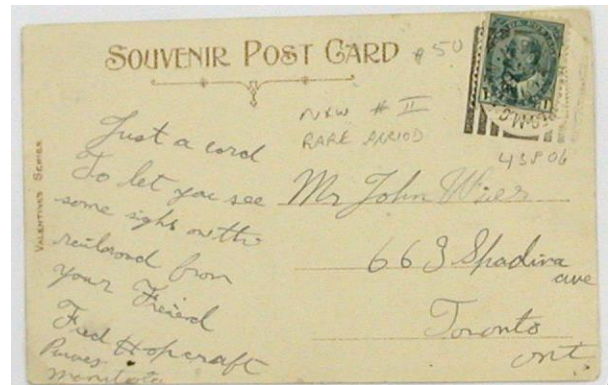 SOUVENIR POST CARD
$50
NXW # II
RARE PERIOD
43806
VALENTINE'S SERIES
Just a card
To let you see
some sights on the
railroad from
your Freind
Fred Hopcraft
Purves
Manitoba
Mr John Wier
663 Spadina
ave
Toronto
ont